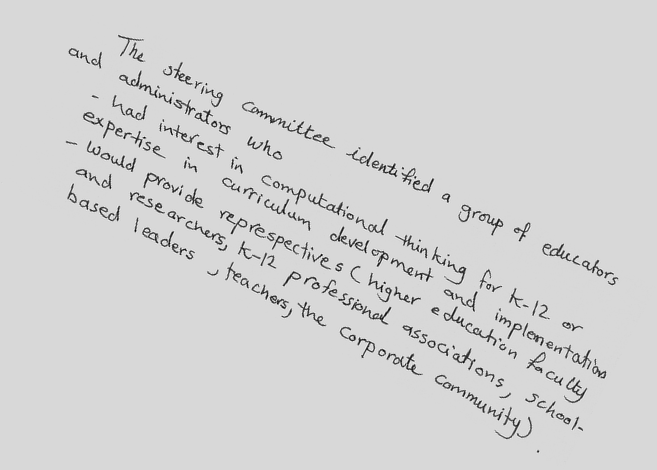 The steering committee identified a group of educators
and administrators who
- had interest in computational thinking for K-12 or
expertise in curriculum development and implementation
- would provide represpectives (higher education faculty
and researchers, K-12 professional associations, school-
based leaders, teachers, the corporate community).